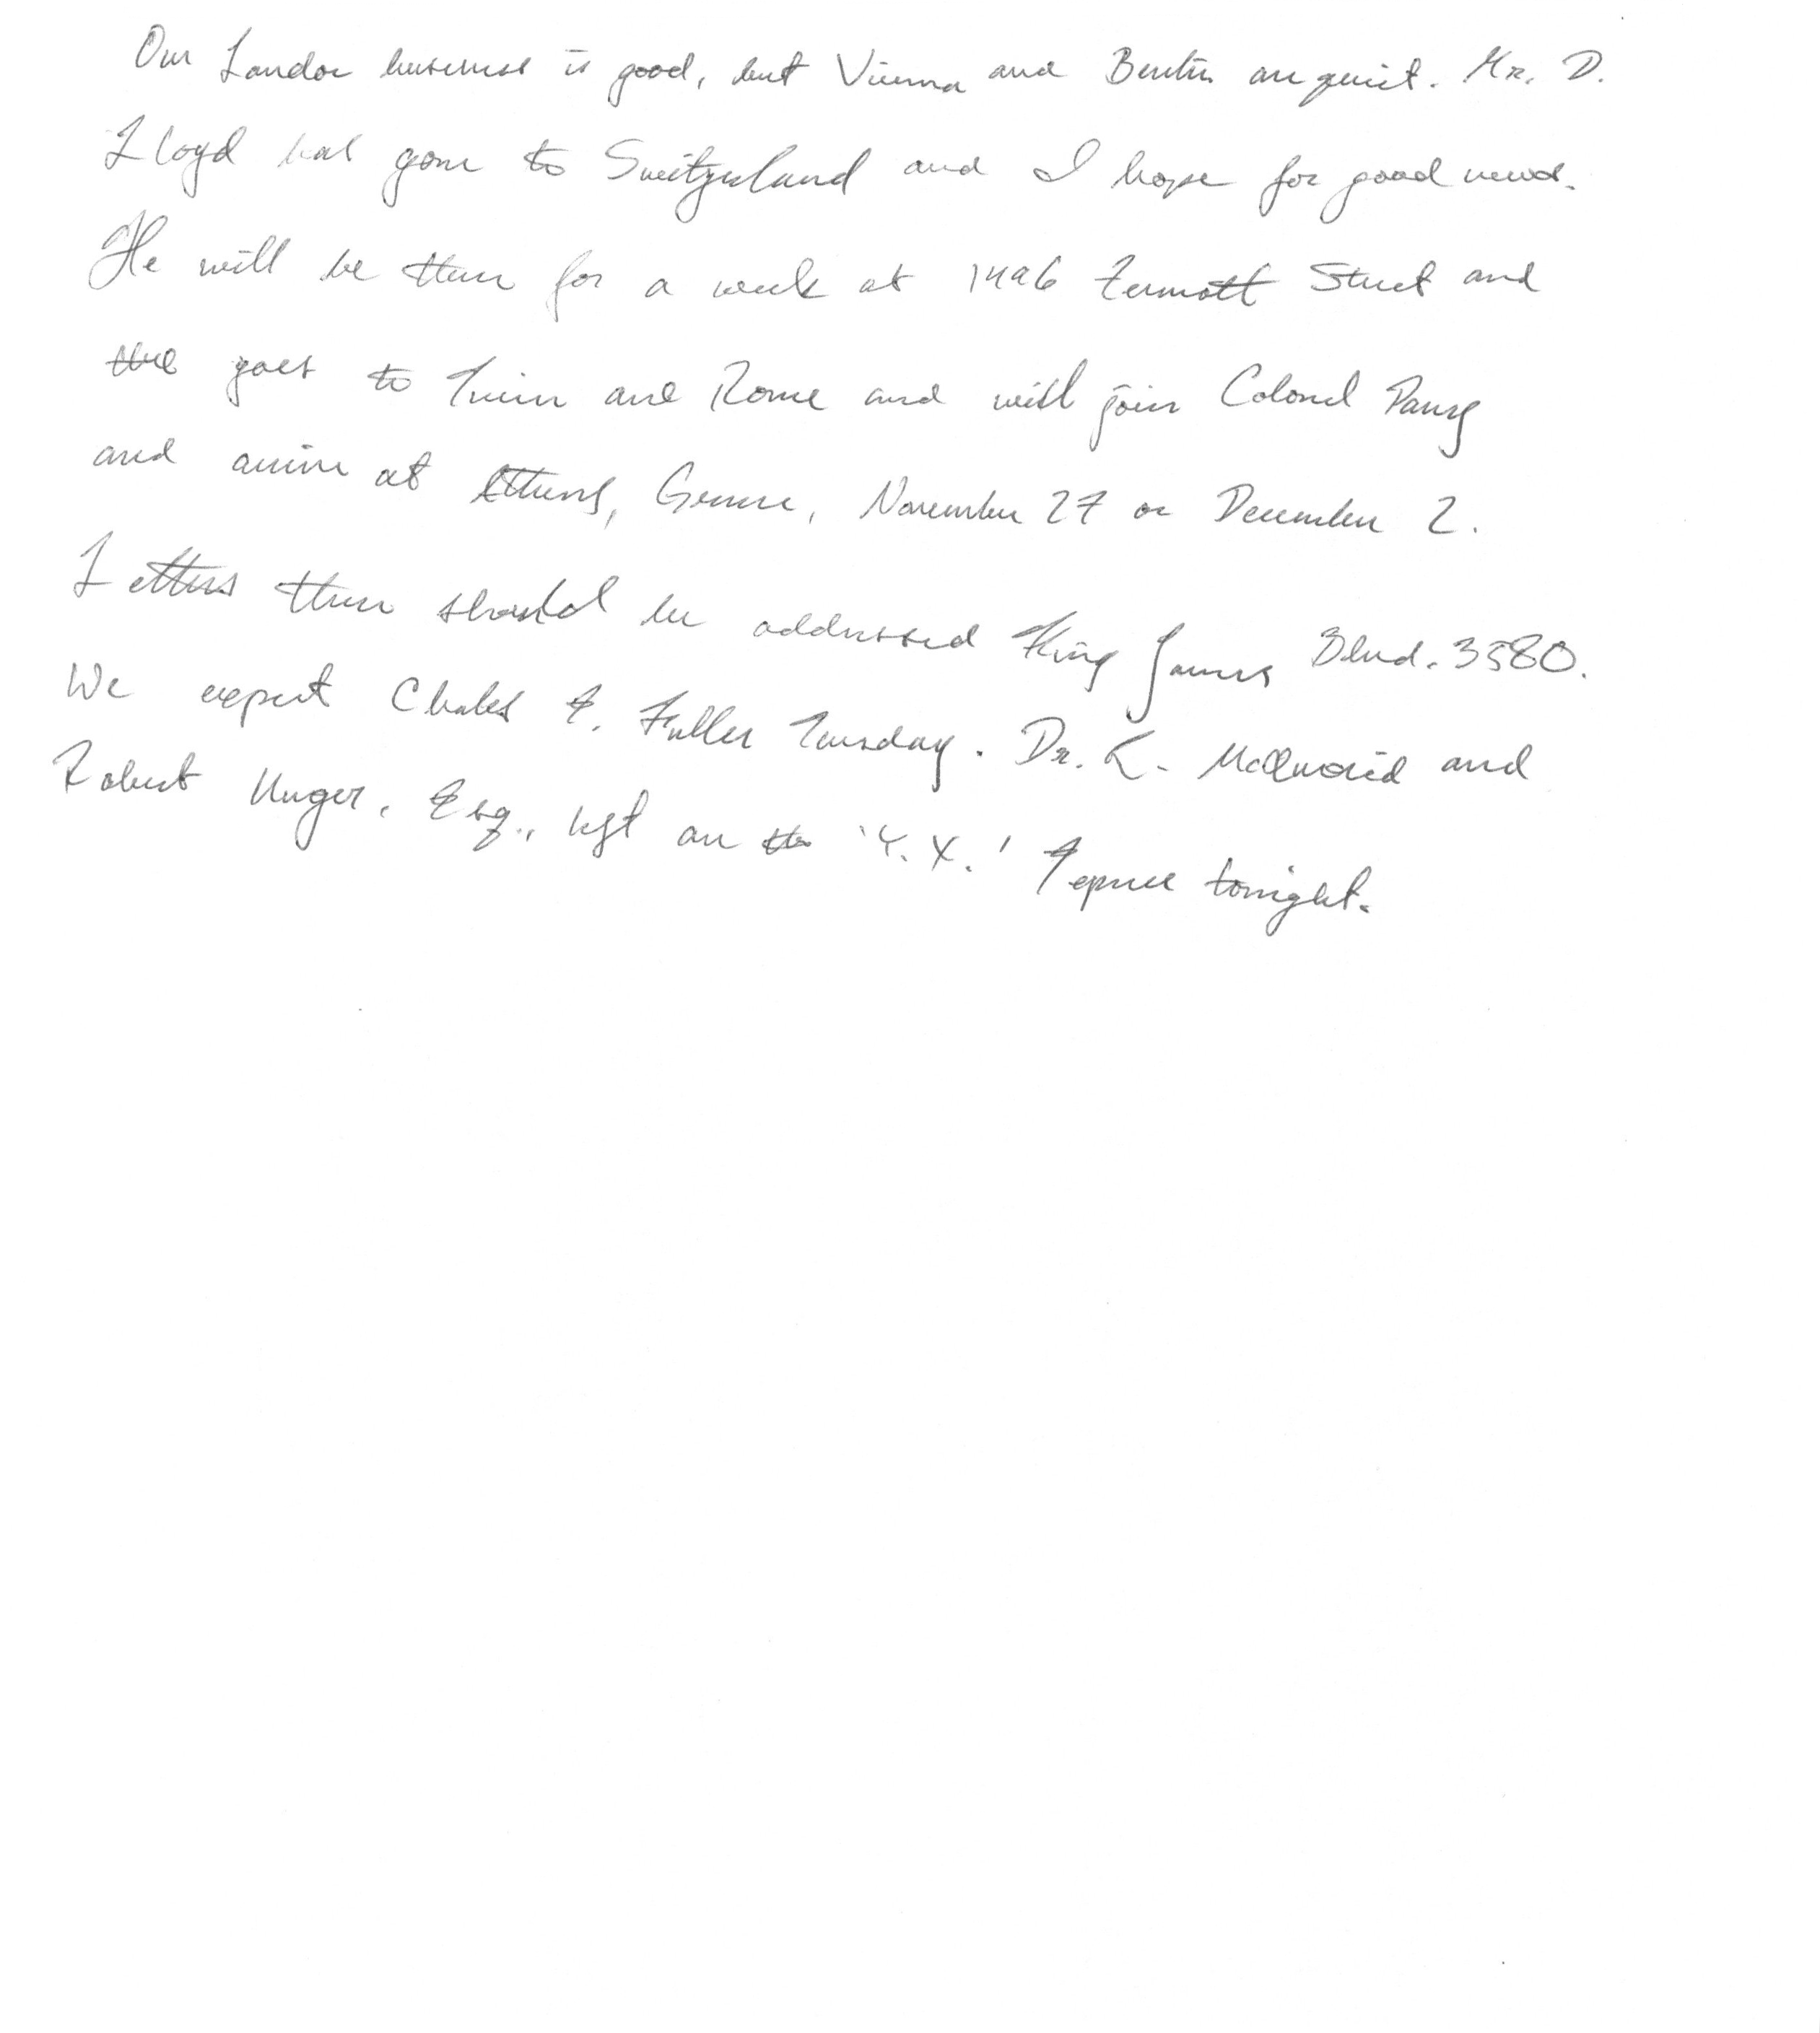 Our London business is good, but Vienna and Berlin are quiet. Mr. D.
Lloyd has gone to Switzerland and I hope for good news.
He will be there for a week at 1496 Zermott Street and
then goes to Turin and Rome and will join Colonel Parry
and arrive at Athens, Greece, November 27 or December 2.
Letters there should be addressed King James Blvd. 3580.
We expect Charles E. Fuller Tuesday. Dr. L. McQuaid and
Robert Unger, Esq., left on the 'Y.X.' Express tonight.